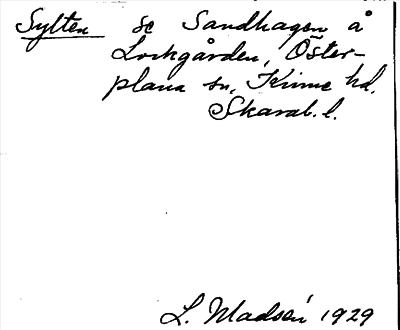 Sylten se Sandhagen å
Lockgården, Öster-
plana sn, Kinne hd.
Skarab. l.
L. Madsén 1929